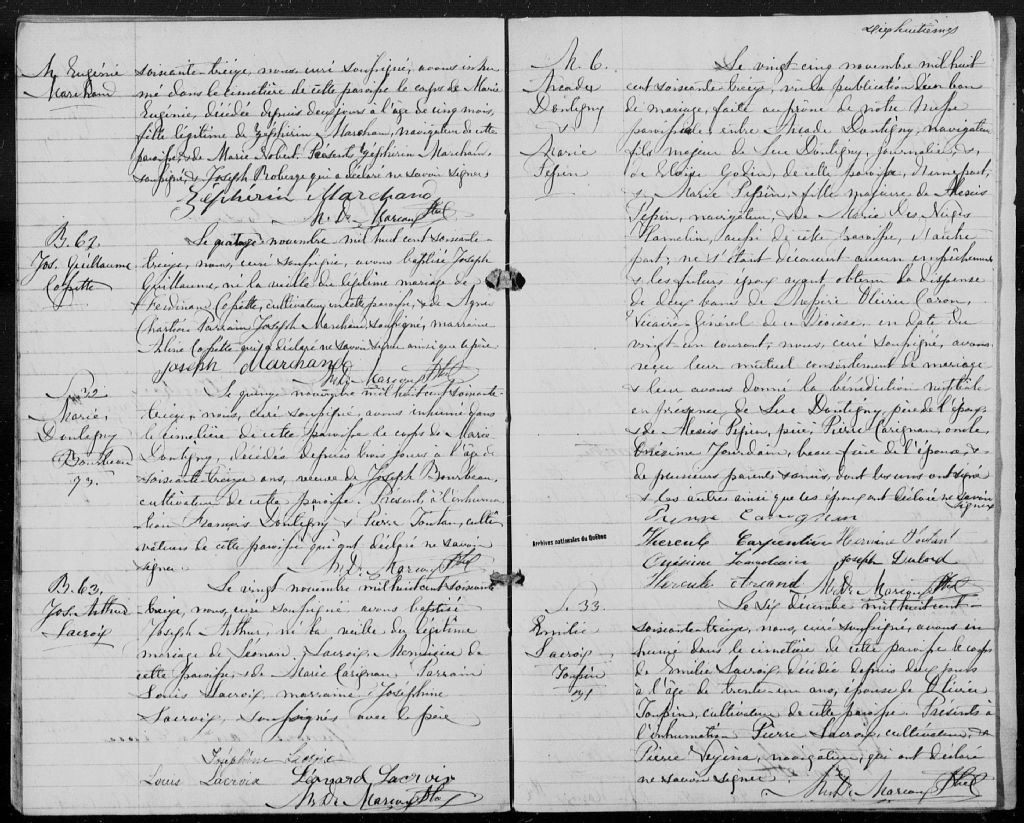 M. Eugénie
Marchand
soixante-treize, nous, curé soussigné, avons inhu-
mé dans le cimetière de cette paroisse le corps de Marie
Eugénie, décédée depuis deux jours à l'âge de cinq mois,
fille légitime de Zéphirin Marchan, navigateur de cette
paroisse, & de Marie Robert. Présents Zéphirin Marchan,
soussigné, & Joseph Roberge qui a déclaré ne savoir signer
Zéphérin Marchand
M. De Marcoux Ptre
B. 62.
Jos. Guillaume
Copette
Le quatorze novembre mil huit cent soixante-
treize, nous, curé soussigné, avons baptisé Joseph
Guillaume, né la veille du légitime mariage de
Ferdinan Copette, cultivateur, cette paroisse, & de Agnès
Parrain Joseph Marchan soussigné, marraine
Copette qui a déclaré ne savoir signer ainsi que le père
Joseph Marchand
M. De Marcoux Ptre
S. 32
Marie
Dontigny
Bourbeau
73.
Le quinze novembre mil huit cent soixante-
treize, nous, curé soussigné, avons inhumé dans
le cimetière de cette paroisse le corps de Marie
Dontigny, décédée depuis trois jours à l'âge de
soixante-treize ans, veuve de Joseph Bourbeau,
cultivateur de cette paroisse. Présents à l'inhuma-
tion François Dontigny & Pierre Toutan, culti-
vateurs de cette paroisse qui ont déclaré ne savoir
signer.
M. De Marcoux Ptre
B. 63.
Jos. Arthur
Lacroix
Le vingt novembre mil huit cent soixante
treize, nous, curé soussigné, avons baptisé
Joseph Arthur, né la veille du légitime
mariage de Léonar Lacroix, Menuisier de
cette paroisse, & de Marie Carignan. Parrain
Louis Lacroix, marraine Josephine
Lacroix, soussignés avec le père
Joséphine Lacroix
Louis Lacroix Léonard Lacroix
M. De Marcoux Ptre
Dixhuitième
M. 6.
Arcade
Dontigny
&
Marie
Pépin
Le vingt cinq novembre mil huit
cent soixante-treize, vu la publication d'un ban
de mariage, faite au prône de notre messe
paroissiale, entre Arcade Dontigny, navigateur,
fils majeur de Luc Dontigny, journalier, &
de Eloise Godin, de cette paroisse, d'une part;
& Marie Pépin, fille majeure de Alexis
Pépin, navigateur, & de Marie Des Neiges
Hamelin, aussi de cette paroisse, d'autre
part; ne s'étant découvert aucun empêchement
& les futurs époux ayant obtenu la dispense
de deux bans de Messire Olivier Caron,
Vicaire-Général de ce Diocèse, en date du
vingt-un courant; nous, curé soussigné, avons
reçu leur mutuel consentement de mariage
& leur avons donné la bénédiction nuptiale
en présence de Luc Dontigny, père de l'époux,
& de Alexis Pépin, père, Pierre Carignan, oncle,
Onésime Jourdain, beau frère de l'épouse, & de
de plusieurs parents & amis, dont les uns ont signé
& les autres ainsi que les époux ont déclaré ne savoir
signer
Pierre Carignan
Hercule Carpentier Hermine
Onésime Joseph Dubord
Hercule Arcand M. De Marcoux Ptre
Archives nationales du Québec
S. 33.
Emilie
Lacroix
Toupin
31
Le six décembre mil huit cent-
soixante-treize, nous, curé soussigné, avons in-
humé dans le cimetière de cette paroisse le corps
de Emilie Lacroix, décédée depuis deux jours
à l'âge de trente-un ans, épouse de Olivier
Toupin, cultivateur de cette paroisse. Présents à
l'inhumation Pierre Lacroix, cultivateur, &
Pierre Vézina, navigateur, qui ont déclaré
ne savoir signer
M. De Marcoux Ptre